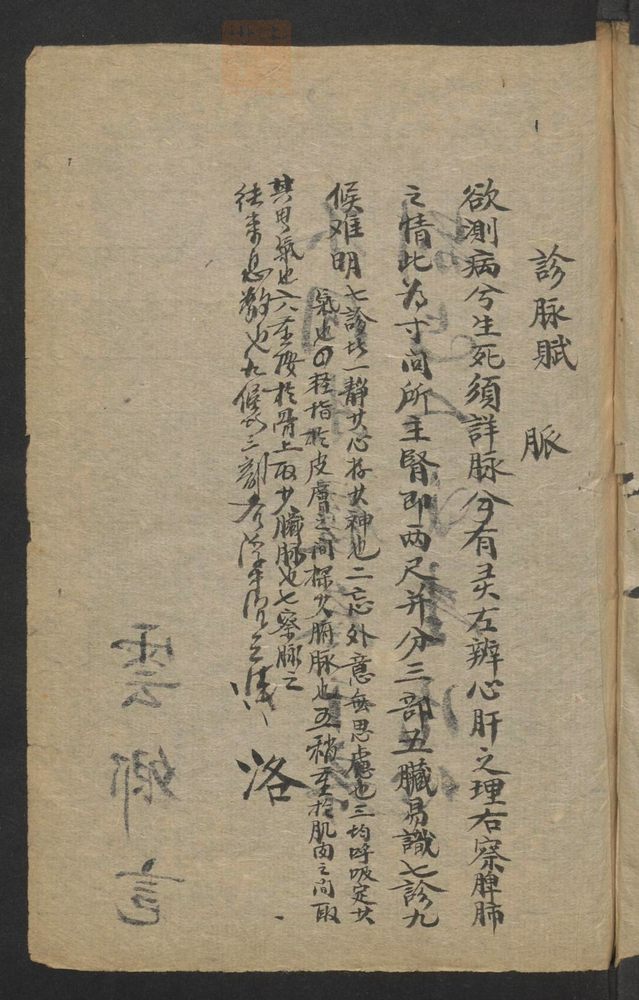 診脉賦 脈
欲測病兮生死須詳脉兮有灵左辨心肝之理右察脾肺
之情此为寸関所主腎即两尺并分三部五臓易識七診九
候难明七診者一静其心存其神也二忘外意無思慮也三均呼吸定其
氣也四轻指於皮膚之间探其腑脉也五稍重於肌肉之间取
其胃氣也六重按於骨上取其臓脉也七察脉之
往来息数也九候者三部各浮中沉
洛
雲卿記